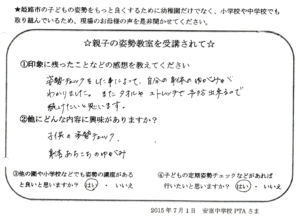 ★姫路市の子どもの姿勢をもっと良くするために幼稚園だけでなく、小学校や中学校でも
取り組んでいるため、現場のお母様の声を是非聞かせてください。
☆親子の姿勢教室を受講されて☆
①印象に残ったことなどの感想を教えてください
姿勢チェックをした事によって、自分の身体のゆがみが
わかりました。またタオルやストレッチで予防出来るので
続けたいと思います。
②他にどんな内容に興味がありますか?
子供の姿勢チェック、
身体あちこちのゆがみ
③他の園や小学校などでも姿勢の講座がある
と良いと思いますか? はい ・ いいえ
④子どもの定期姿勢チェックなどがあれば
行いたいと思いますか? はい ・ いいえ
2015年7月1日 安室中学校PTAさま